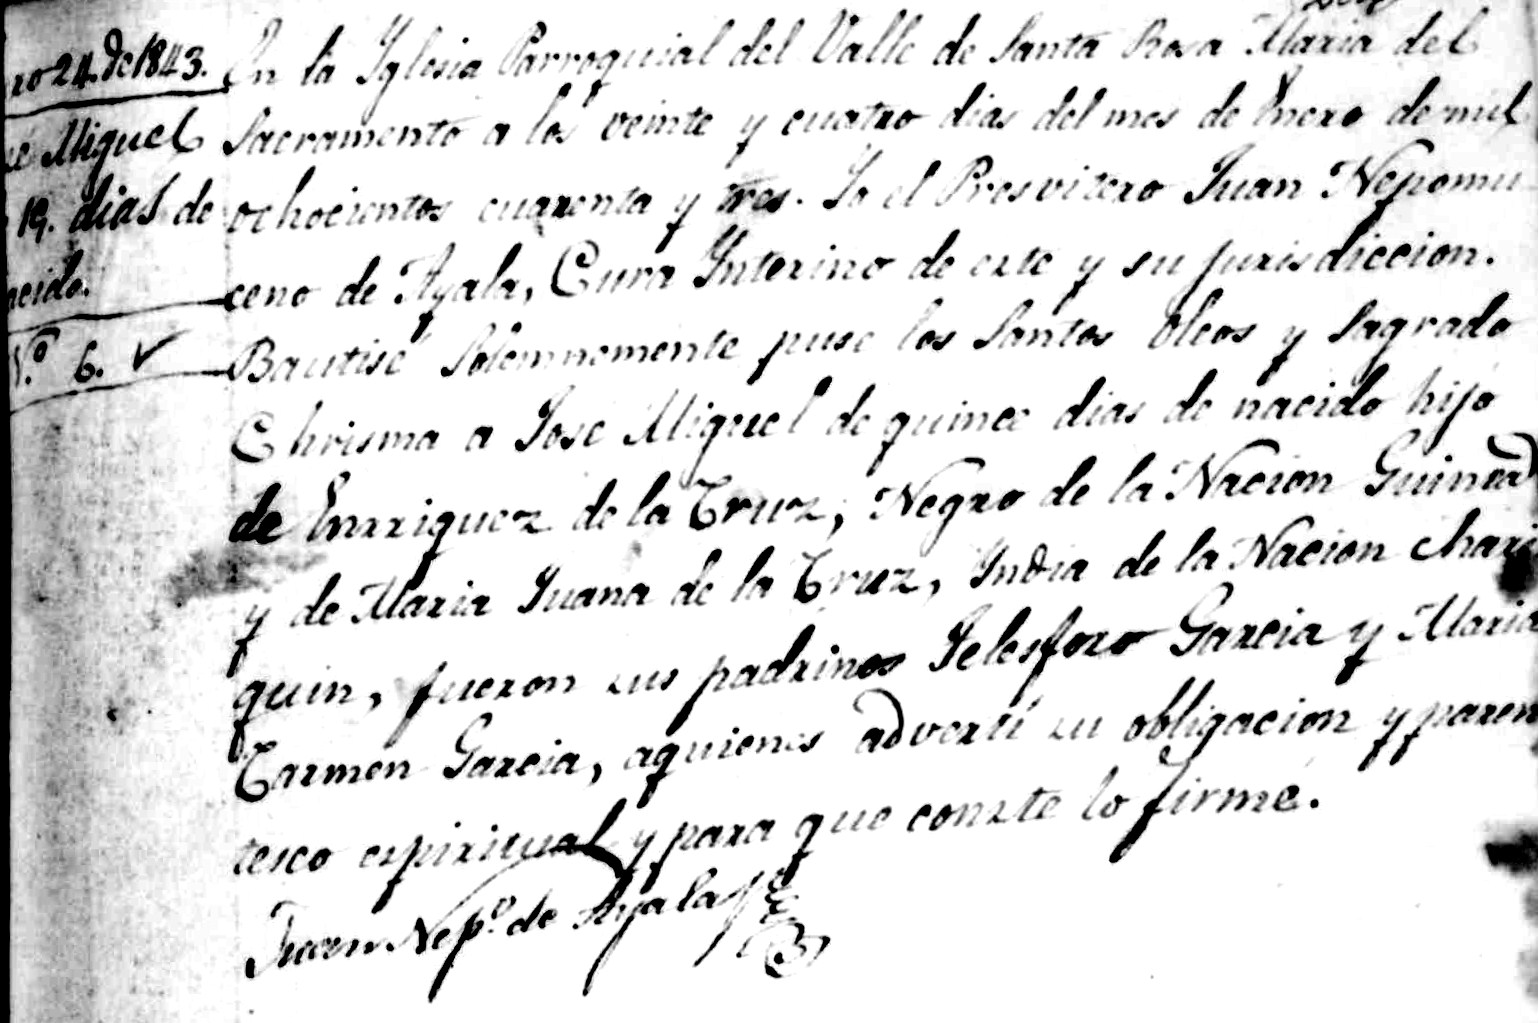 ro 24. de 1843.
é Miguel
19. dias de
acido.
N.º 6.
En la Iglesia Parroquial del Valle de Santa Rosa Maria del
Sacramento a los veinte y cuatro dias del mes de Enero de mil
ochocientos cuarenta y tres. Yo el Presvitero Juan Nepomu
ceno de Ayala, Cura Ynterino de este y su jurisdiccion.
Bautisé Solemnemente puse los Santos Oleos y Sagrado
Chrisma a José Miguel de quince dias de nacido hijo
de Enrriquez de la Cruz, Negro de la Nacion Guinea
y de Maria Juana de la Cruz, India de la Nacion Chari
quin, fueron sus padrinos Telesforo Garcia y Maria
Carmen Garcia, aquienes advertí su obligacion y paren
tesco espiritual y para que conste lo firmé.
Juan Nep.º de Ayala